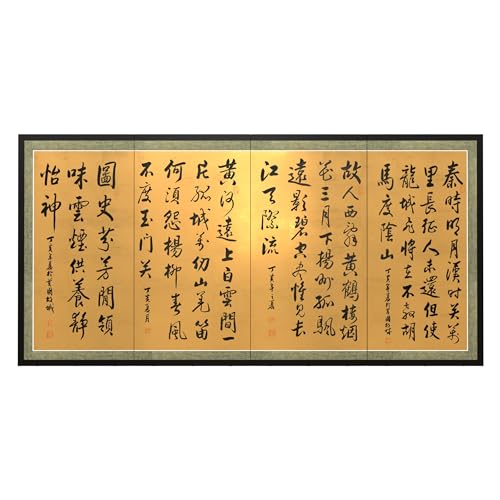 秦時明月漢时关萬
里長征人未還但使
龍城飛將在不教胡
馬度陰山
故人西辭黄鶴楼烟
花三月下揚州孤帆
遠影碧空尽惟見長
江天際流
丁亥年之夏
黄河遠上白雲間一
片孤城万仞山羌笛
何須怨楊柳春風
不度玉门关
丁亥夏月
圖史芬芳閒領
味雲煙供養静
怡神